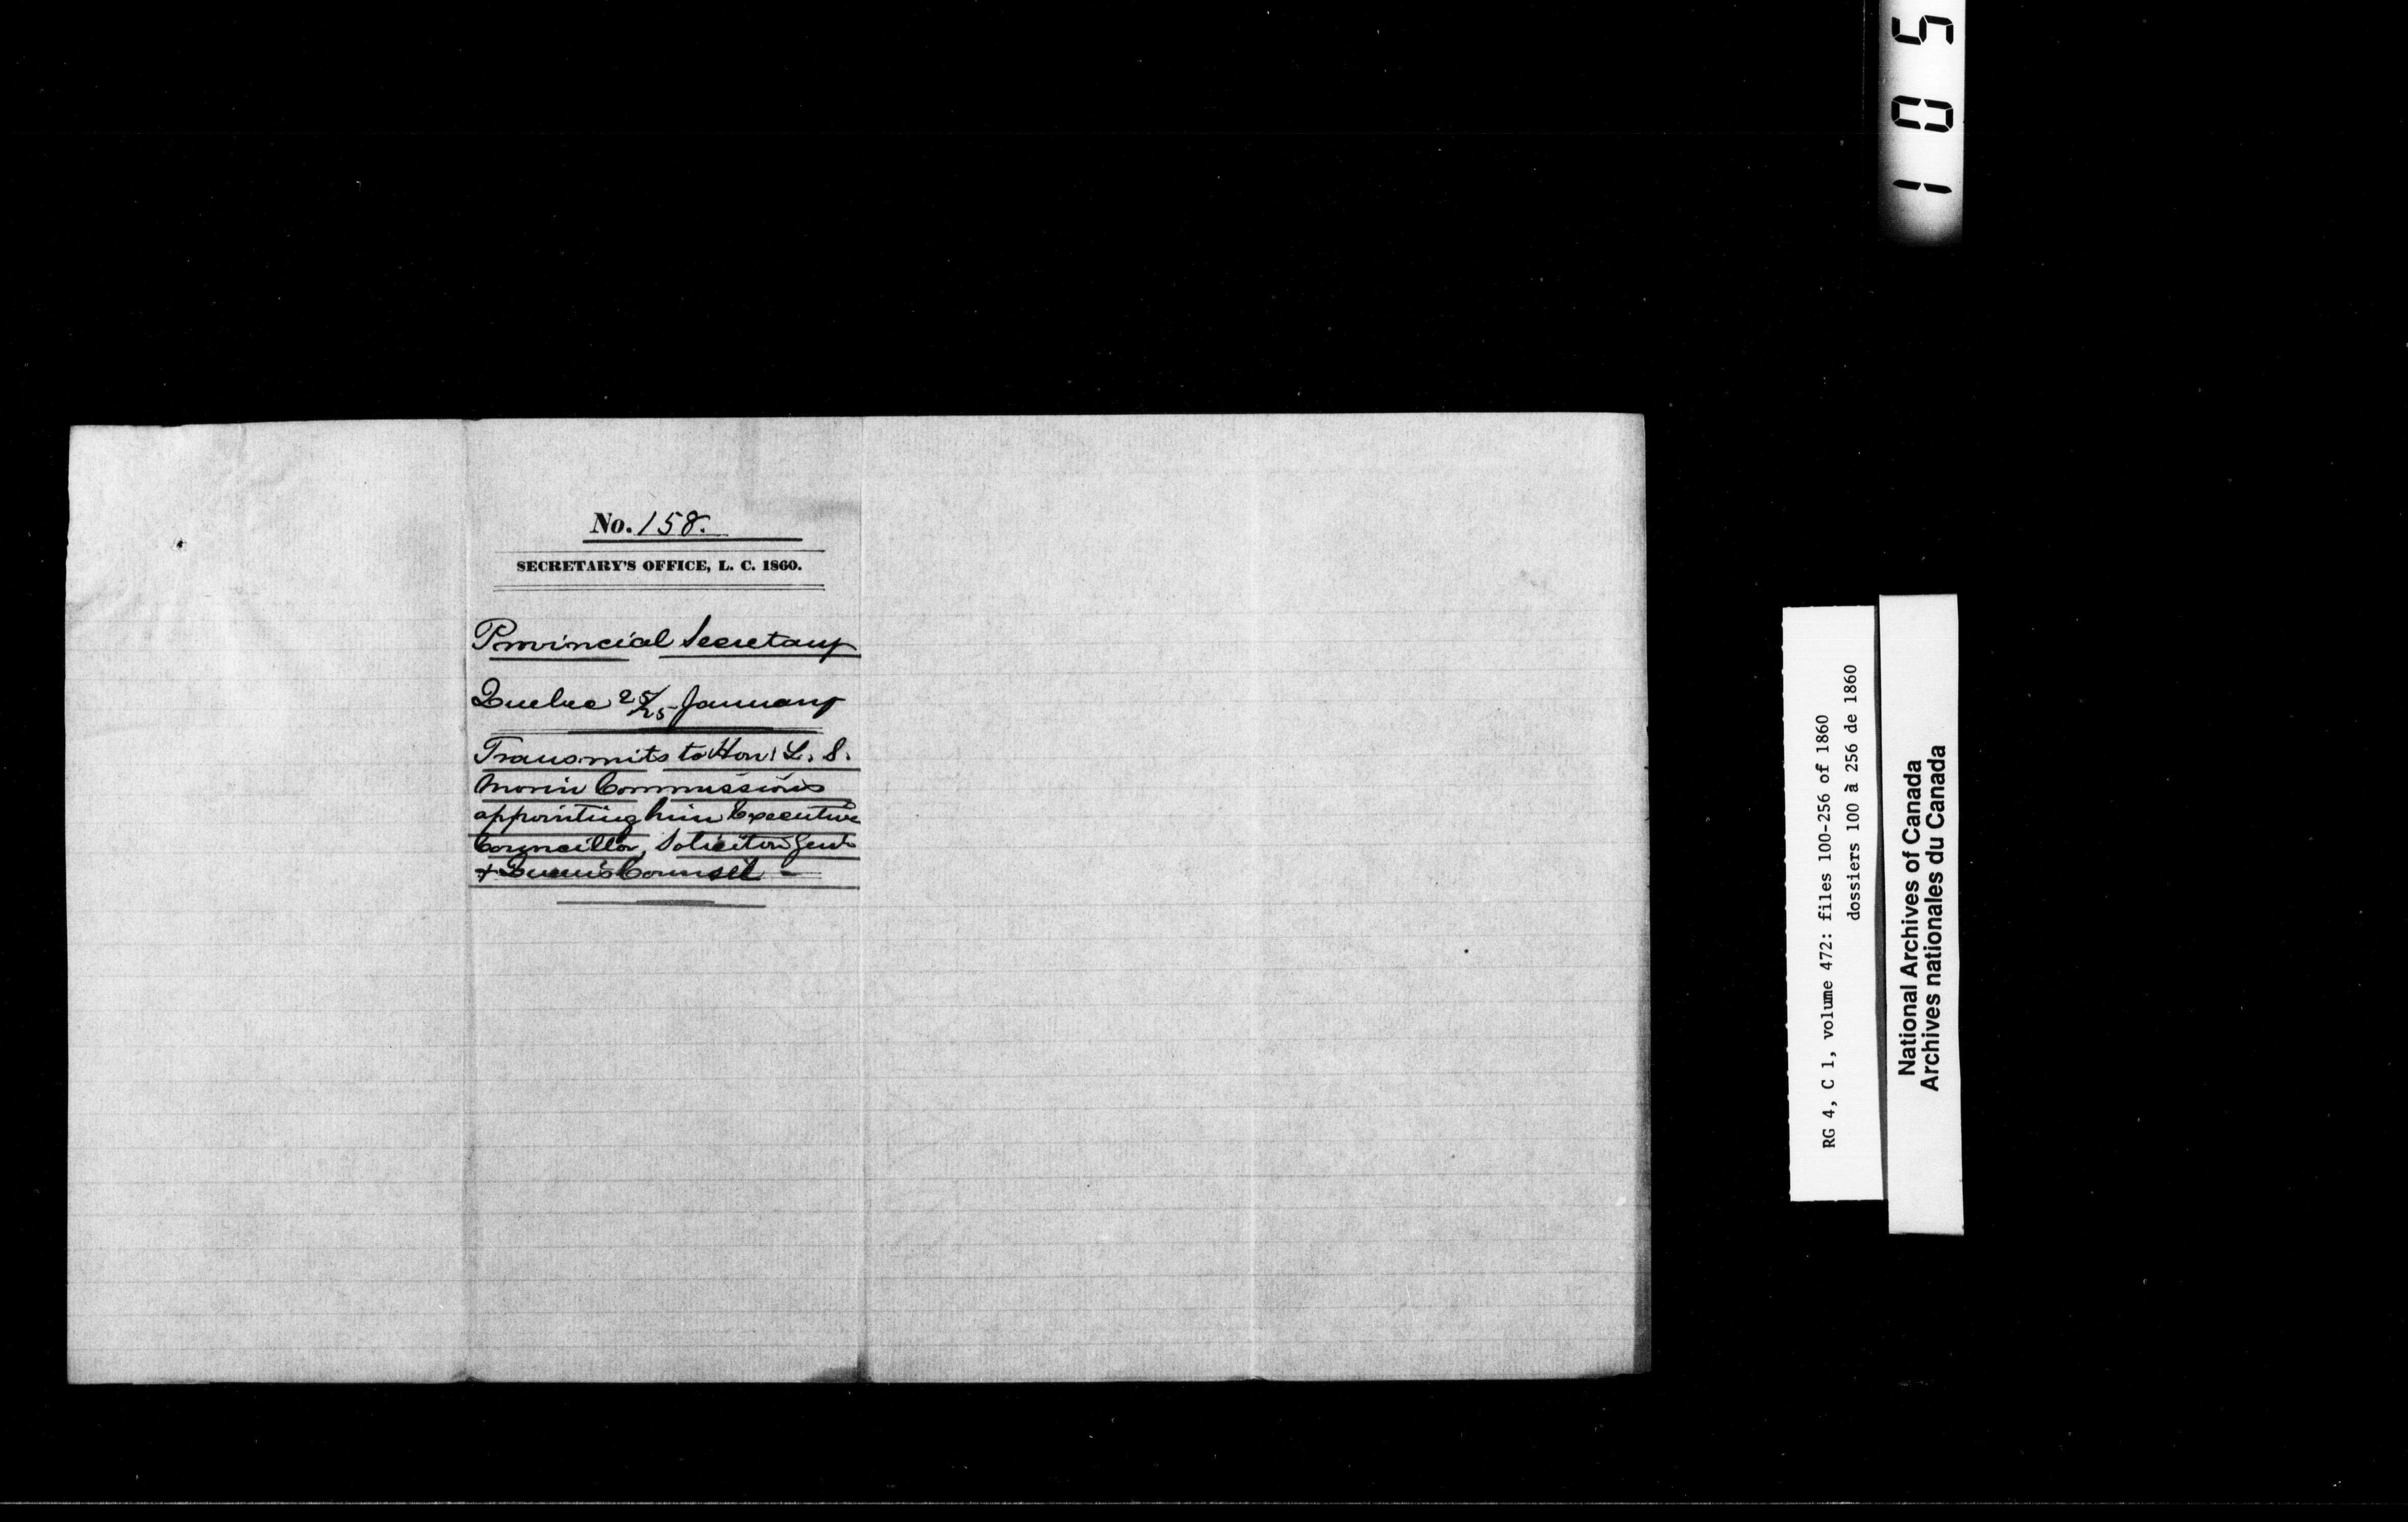 No. 158.
SECRETARY'S OFFICE, L. C. 1860.
Provincial Secretary
Quebec 25/25 January
Transmits to Hon: L. S.
Morin Commissions
appointing him Executive
Councillor, Solicitor Genl
& Queen's Counsel -
105
RG 4, C 1, volume 472: files 100-256 of 1860
dossiers 100 à 256 de 1860
National Archives of Canada
Archives nationales du Canada